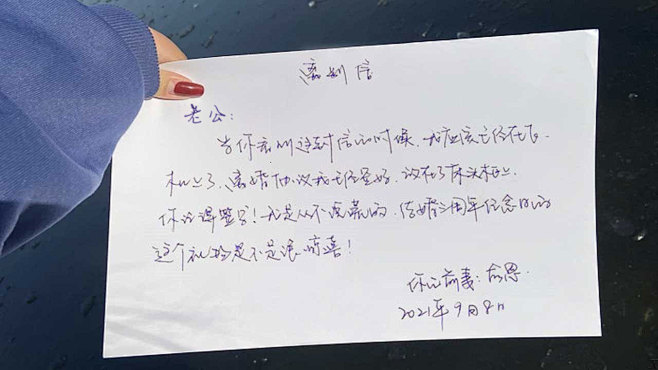 离别信
老公:
当你看到这封信的时候,我应该已经在飞
机上了,离婚协议我已经签好,放在了床头柜上
你记得签字!我是从不虚荣的,结婚三周年纪念日的
这个礼物是不是很惊喜!
你的前妻:俞恩.
2021年9月8日